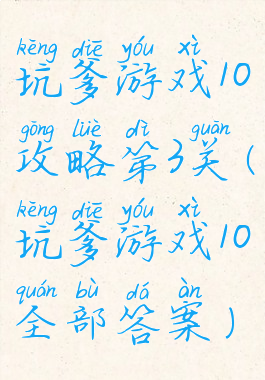 kēng diē yóu xì
坑爹游戏10
gōng lüè dì guān
攻略第3关(
kēng diē yóu xì
坑爹游戏10
quán bù dá àn
全部答案)